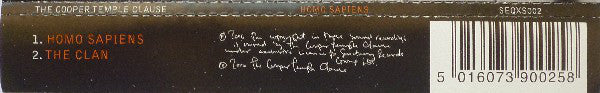 THE COOPER TEMPLE CLAUSE
HOMO SAPIENS
SEQXS002
1. HOMO SAPIENS
2. THE CLAN
℗ 2006 The copyright in these sound recordings
is owned by The Cooper Temple Clause
under exclusive licence to Sanctuary Records
Group Ltd.
© 2006 The Cooper Temple Clause
5 016073 900258